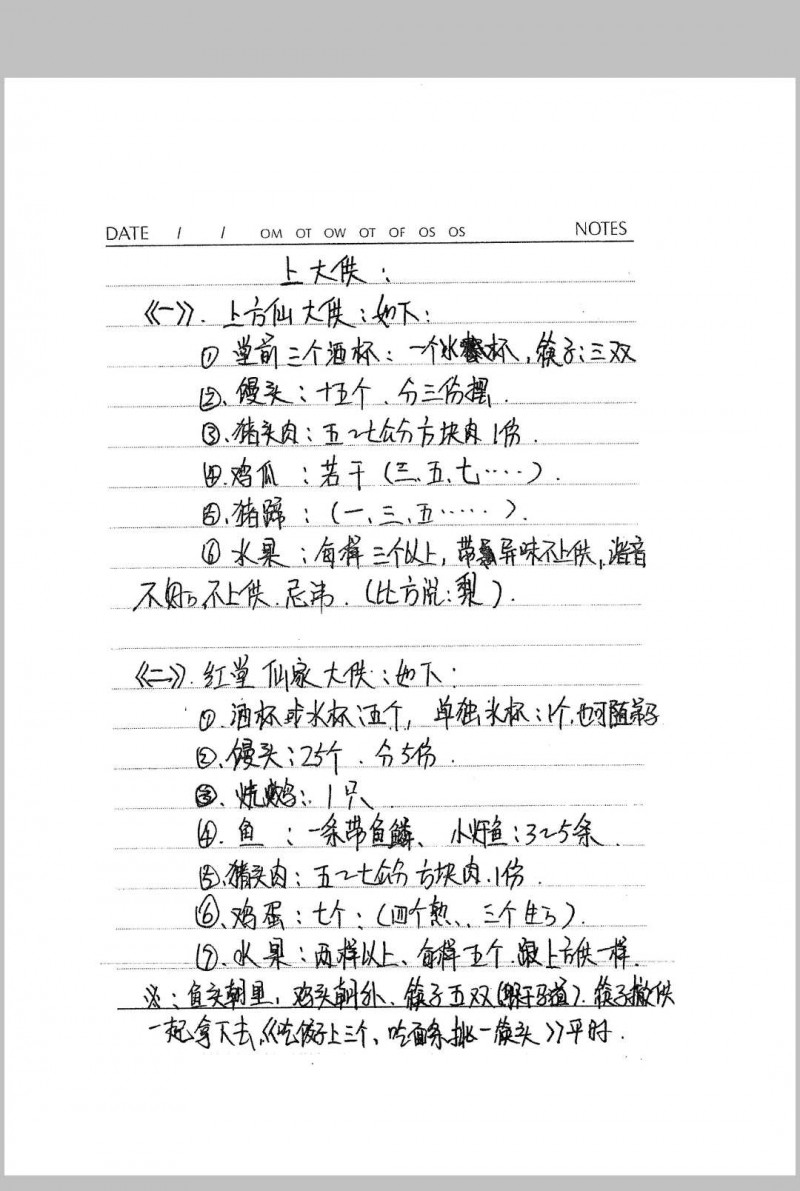 DATE / / OM OT OW OT OF OS OS NOTES
上大供：
《一》. 上方仙大供：如下：
① 堂前三个酒杯：一个水杯, 筷子：三双
②、馒头：十五个. 分三份摆.
③、猪头肉：五～七公分方块肉1份.
④、鸡瓜：若干（三、五、七……）.
⑤、猪蹄：（一、三、五……）.
⑥ 水果：每样三个以上, 带异味不上供, 谐音
不好的, 不上供. 忌讳.（比方说：梨）.
《二》. 红堂仙家大供：如下：
①. 酒杯或水杯：五个, 单独水杯：1个, 也可随弟子
②、馒头：25个. 分5份.
③. 烧鸡：1只.
④. 鱼：一条带鱼鳞、小炸鱼：3～5条.
⑤、猪头肉：五～七公分方块肉.1份.
⑥、鸡蛋：七个：（四个熟、三个生的）.
⑦、水果：两样以上、每样五个.跟上方供一样.
※：鱼头朝里, 鸡头朝外、筷子五双. 筷子撤供
一起拿下去,《吃饺子上三个、吃面条挑一筷头》平时.